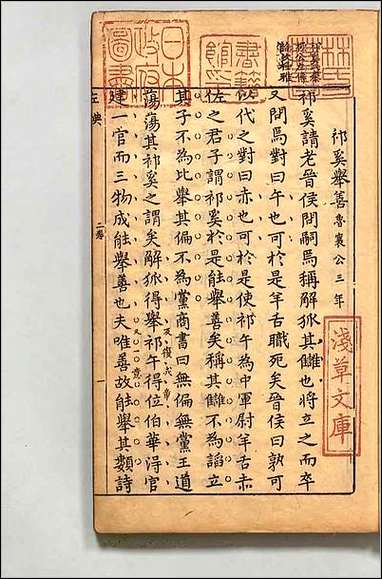 祁奚舉善 魯襄公三年
祁奚請老晉侯問嗣焉稱解狐其讎也將立之而卒
又問焉對曰午也可於是羊舌職死矣晉侯曰孰可
以代之對曰赤也可於是使祁午為中軍尉羊舌赤
佐之君子謂祁奚於是能舉善矣稱其讎不為諂立
其子不為比舉其偏不為黨商書曰無偏無黨王道
蕩蕩其祁奚之謂矣解狐得舉祁午得位伯華得官
建一官而三物成能舉善也夫唯善故能舉其類詩
左
二卷
一
日本
政府
圖書
書籍
館印
林氏
淺草文庫